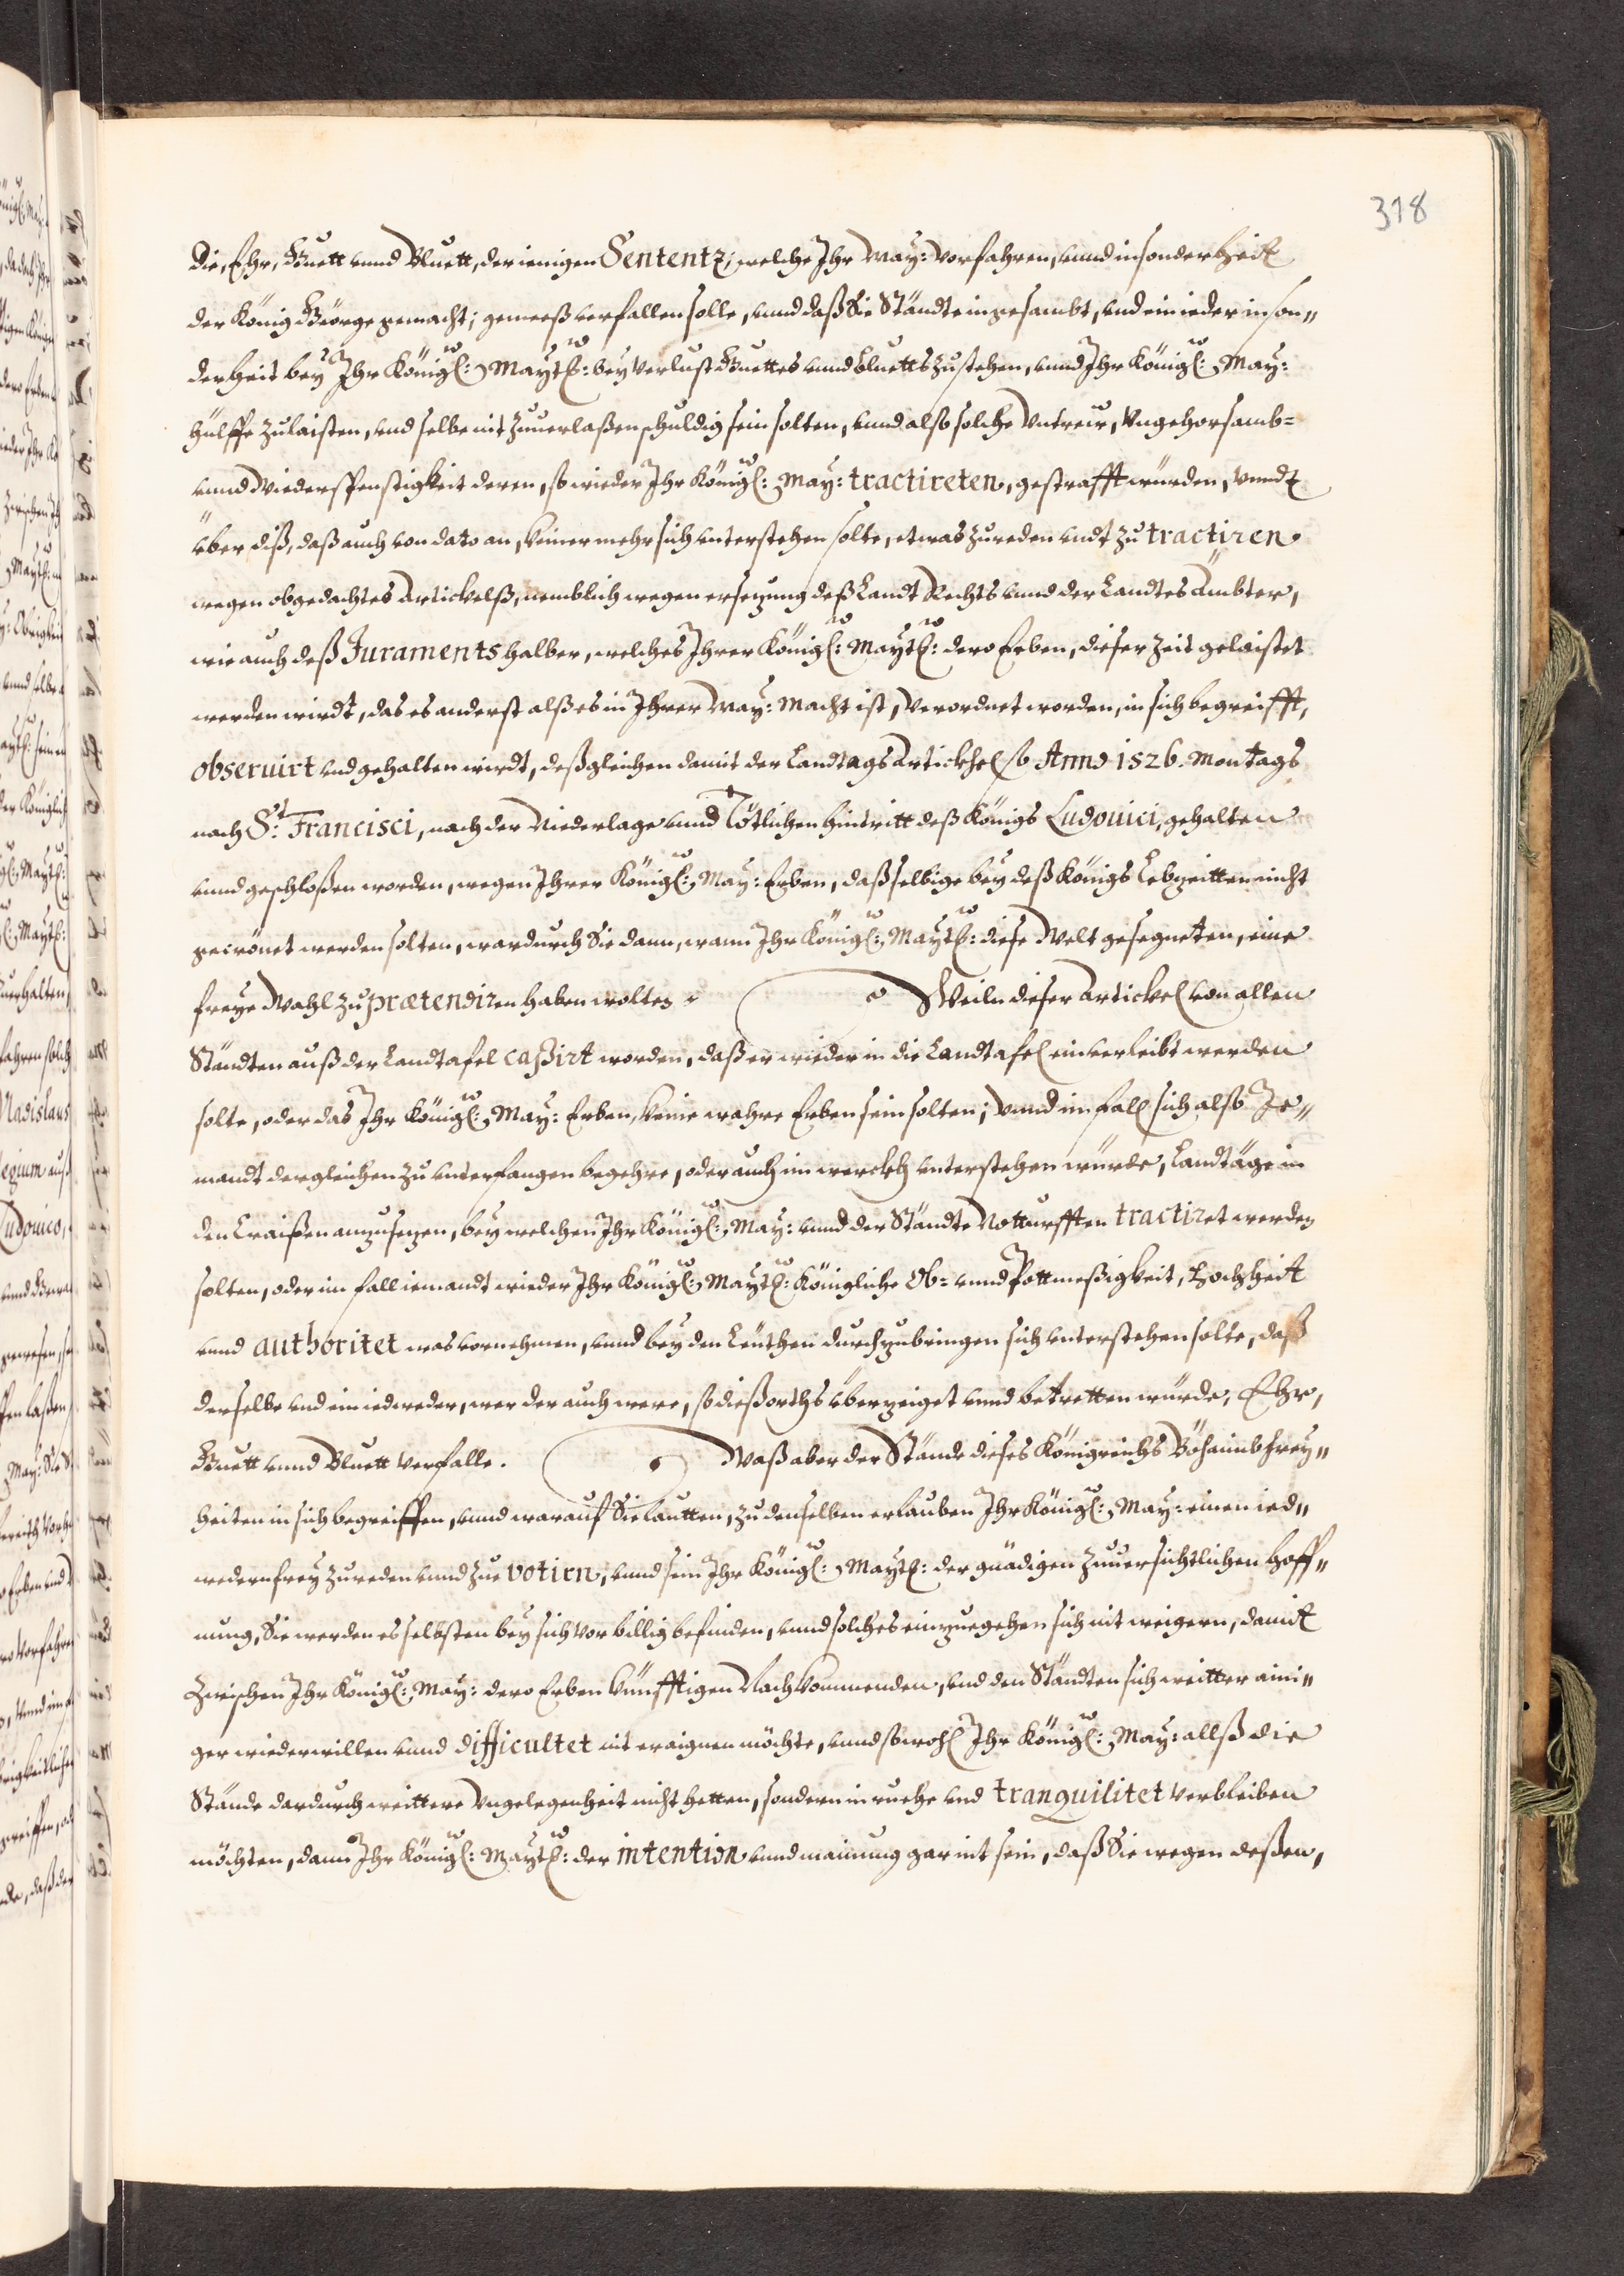 318
die, Ehr, Guett vnnd Bluett, der ienigen Sententz, welche Ihr May: Vorfahren, vnnd insonderheit
der König Geörge gemacht; gemeeß verfallen solle, vnnd daß die Ständte ingesambt, vnd ein ieder inson„
derheit bey Ihr Königl: Mayttl: bey Verlust Guettes vnnd Bluetts zustehen, vnnd Ihr Königl: May:
hülffe zulaisten, vnd selbe nit zuuerlaßen schuldig sein solten, vnnd alß solche Vntreür, Vngehorsamb-
vnnd Wiederspenstigkeit deren, so wieder Ihr Königl: May: tractireten, gestrafft würden, Vnndt
über diß, daß auch von dato an, keiner mehr sich vnterstehen solte, etwas zureden vndt zu tractiren
wegen obgedachtes Artickelß, nemblich wegen ersezung deß Landt Rechts vnnd der Landtes Ämbter,
wie auch deß Juraments halber, welches Ihrer Königl: Mayttl: dero Erben, dieser Zeit gelaistet
werden wirdt, das es anderst alß es in Ihrer May: Macht ist, Verordnet worden, in sich begreifft,
obseruirt vnd gehalten wirdt, deßgleichen damit der Landtags Artickhel so Anno 1526. Montags
nach St: Francisci, nach der Niederlage vnnd Tötlichen hintritt deß Königs Ludouici, gehalten
vnnd geschloßen worden, wegen Ihrer Königl: May: Erben, daß selbige bey deß Königs Lebzeitten nicht
gecrönet werden solten, wardurch Sie dann, wann Ihr Königl: Mayttl: diese Welt gesegneten, eine
freye Wahl zu prætendiren haben wolten. Weiln dieser Artickel von allen
Ständten auß der Landtafel caßirt worden, daß er wieder in die Landtafel einverleibt werden
solte, oder das Ihr Königl: May: Erben, keine wahre Erben sein solten; Vnnd im fall sich alß Je„
mandt dergleichen zu vnterfangen begehre, oder auch im werckh vnterstehen würde, Landtäge in
den Craißen anzusezen, bey welchen Ihr Königl: May: vnnd der Ständte Notturfften tractiret werden
solten, oder im fall iemandt wieder Ihr Königl: Mayttl: Königliche Ob- vnnd Pottmeßigkeit, Hochheit
vnnd authoritet was vornehmen, vnnd bey den Leüthen durchzubringen sich vnterstehen solte, daß
derselbe vnd ein iedweder, wer der auch were, so dießorths überzeiget vnnd betretten würde, Ehr,
Guett vnnd Bluett Verfalle. Waß aber der Stände dieses Königreichs Böhaimb frey„
heiten in sich begreiffen, vnnd worauf Sie lautten, zu denselben erlauben Ihr Königl: May: einen ied„
wedern frey zureden vnnd zue votirn; vnnd sein Ihr Königl: Mayttl: der gnädigen zuuersichtlichen hoff„
nung, Sie werden es selbsten bey sich vor billig befinden, vnnd solches einzuegehen sich nit weigern, damit
Zwischen Ihr Königl: May: dero Erben künfftigen Nachkommenden, vnd den Ständten sich weitter aini„
ger wiederwillen vnnd difficultet nit eraignen möchte, vnnd sowohl Ihr Königl: May: allß die
Stände dardurch weittere Vngelegenheit nicht hetten, sondern in ruehe vnd tranquilitet Verbleiben
möchten, dann Ihr Königl: Mayttl: der intention vnnd mainung gar nit sein, daß Sie wegen deßen,